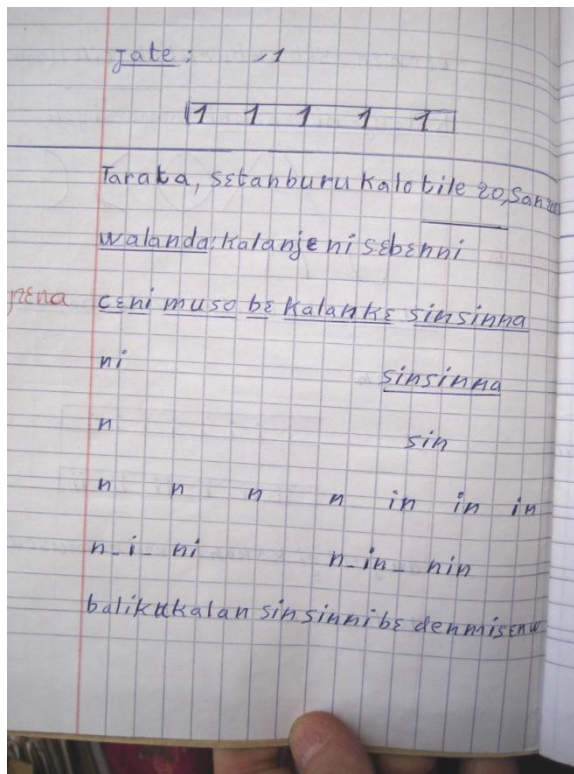 jate : 1
1 1 1 1 1
Tarata, sɛtanburu kalo tile 20, San
walanda: kalanje ni sɛbɛnni
cɛ ni muso bɛ kalan kɛ sinsinna
ni sinsinna
n sin
n n n n in in in
n_i_ ni n_in_ nin
balikukalan sinsinni bɛ denmisɛnw